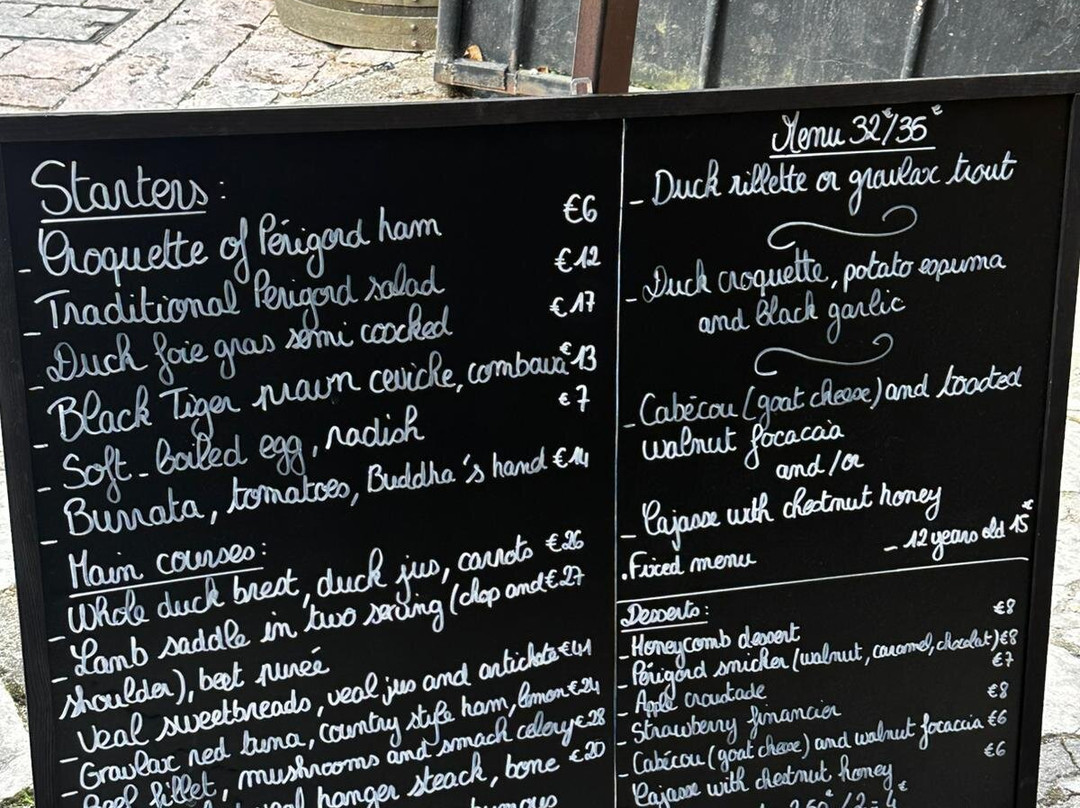 Starters:
- Croquette of Périgord ham €6
- Traditional Périgord salad €12
- Duck foie gras semi coocked €17
- Black Tiger prawn ceviche, combava €13
- Soft-boiled egg, radish €7
- Burrata, tomatoes, Buddha's hand €14
Main courses:
- Whole duck brest, duck jus, carrots €26
- Lamb saddle in two serving (chop and €27
shoulder), beet purée
- Veal sweetbreads, veal jus and artichoke €41
- Gravlax red tuna, country style ham, lemon €24
Beef fillet, mushrooms and smach celery €28
hanger steack, bone €20
Menu 32€/36€
- Duck rillette or gravlax trout
- Duck croquette, potato espuma
and black garlic
- Cabécou (goat cheese) and toasted
walnut focaccia
and/or
- Cajasse with chestnut honey
. Fixed menu - 12 years old 15€
Desserts:
- Honeycomb dessert €8
- Périgord snicker (walnut, caramel, chocolat) €8
- Apple croutade €7
- Strawberry financier €8
- Cabécou (goat cheese) and walnut focaccia €6
Cajasse with chestnut honey €6